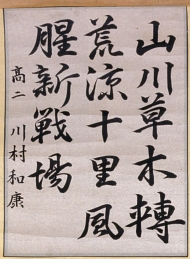 山川草木轉
荒涼十里風
腥新戰場
高二 川村和康